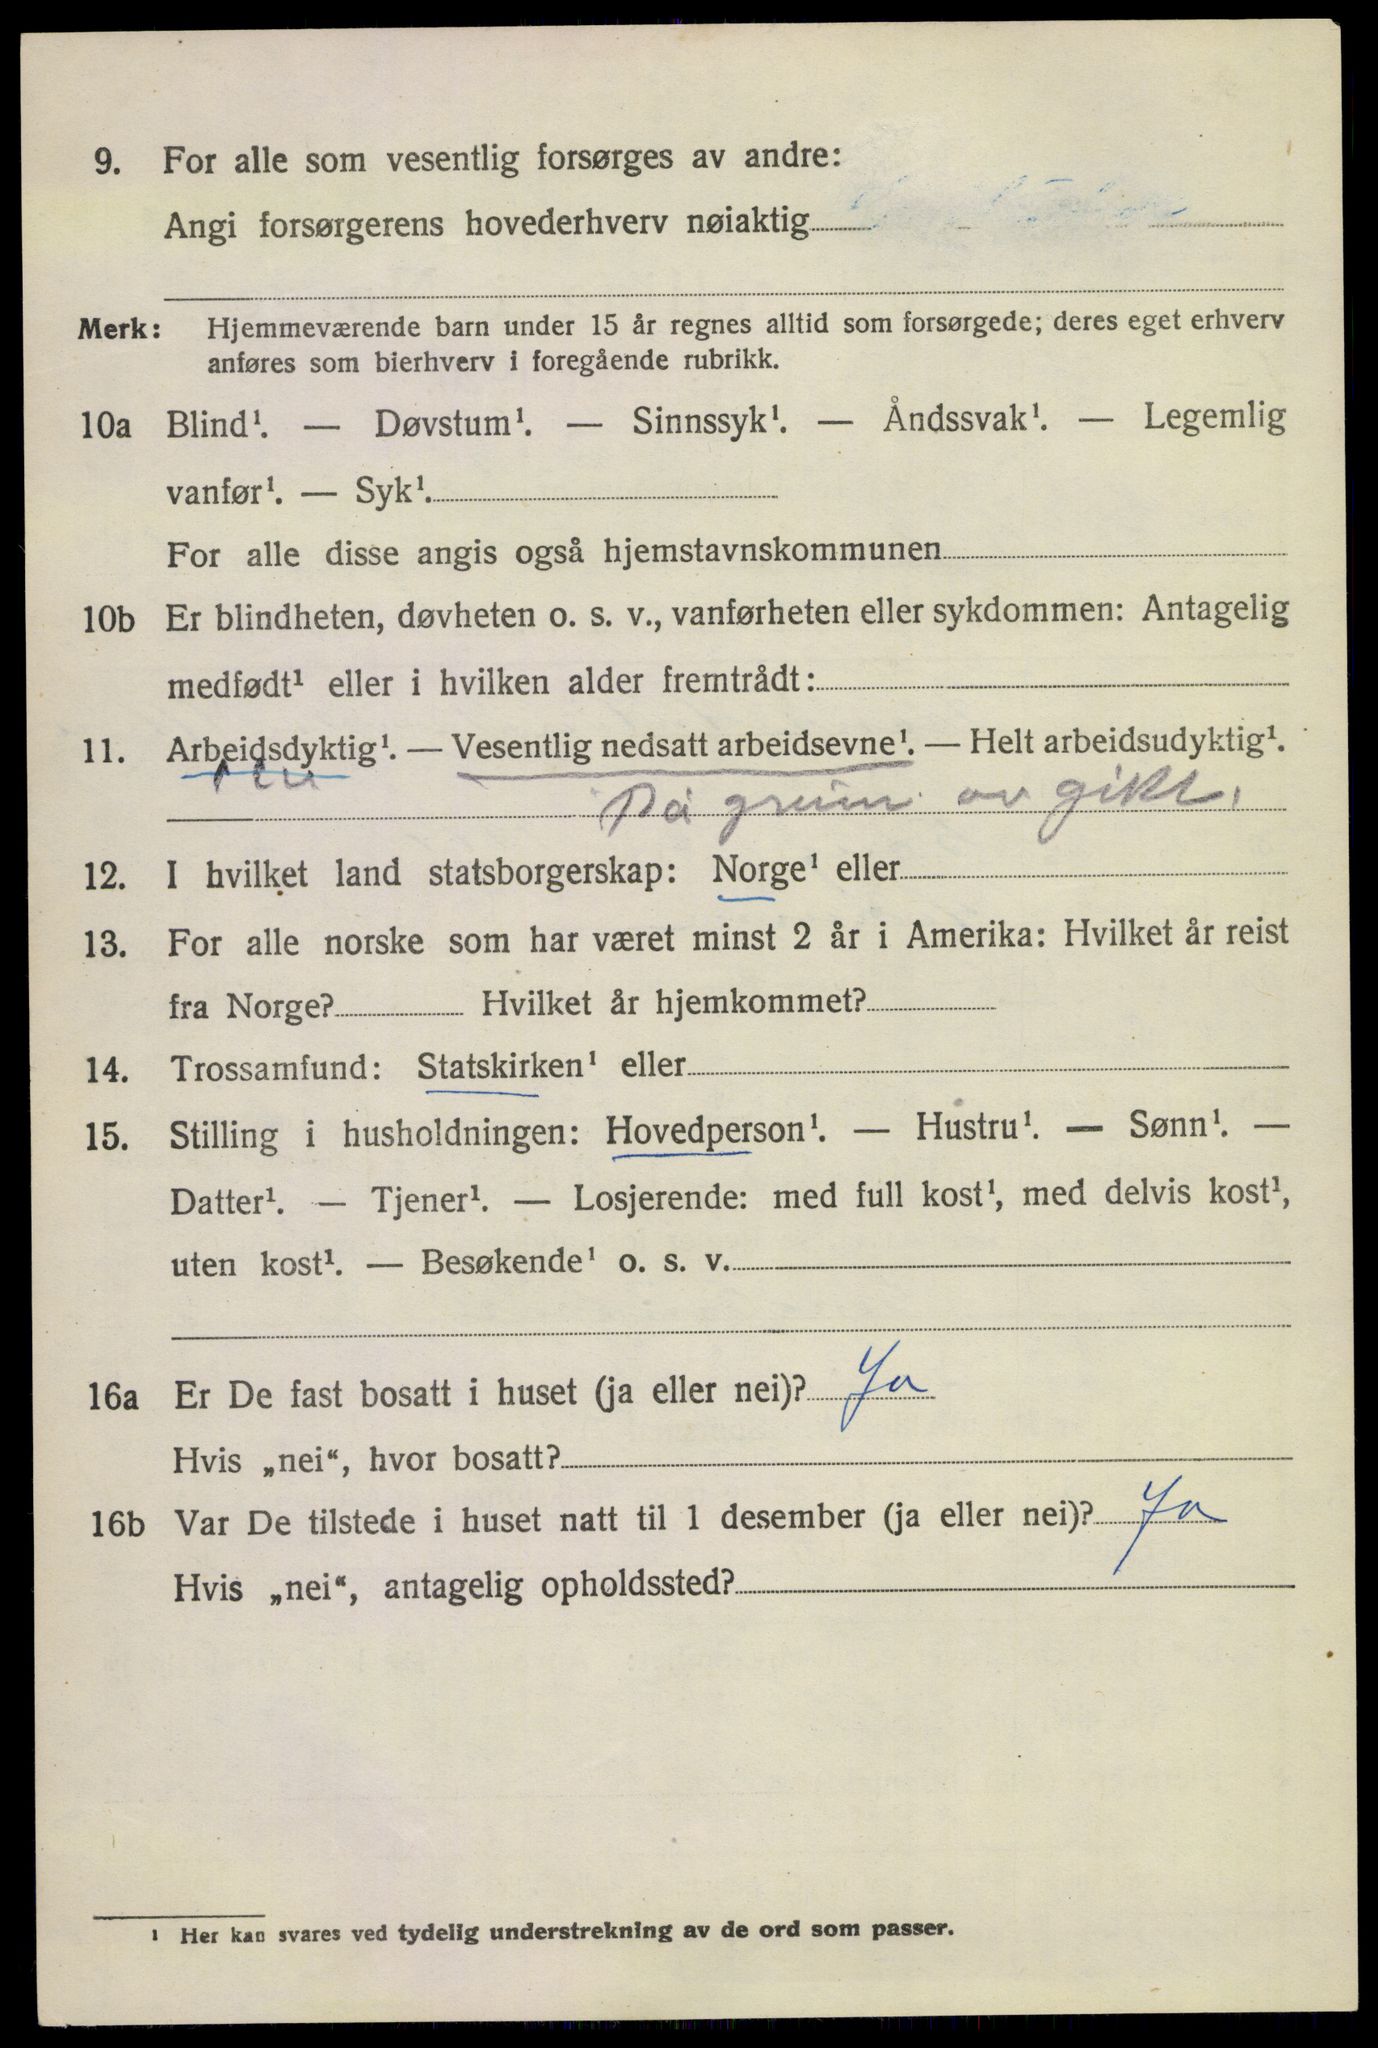 9. For alle som vesentlig forsørges av andre:
Angi forsørgerens hovederhverv nøiaktig
Merk: Hjemmeværende barn under 15 år regnes alltid som forsørgede; deres eget erhverv
anføres som bierhverv i foregående rubrikk.
10a Blind¹. — Døvstum¹. — Sinnssyk¹. — Åndssvak¹. — Legemlig
vanfør¹. — Syk¹.
For alle disse angis også hjemstavnskommunen
10b Er blindheten, døvheten o. s. v., vanførheten eller sykdommen: Antagelig
medfødt¹ eller i hvilken alder fremtrådt:
11. Arbeidsdyktig¹. — Vesentlig nedsatt arbeidsevne¹. — Helt arbeidsudyktig¹.
På grunn av gikt.
12. I hvilket land statsborgerskap: Norge¹ eller
13. For alle norske som har været minst 2 år i Amerika: Hvilket år reist
fra Norge? Hvilket år hjemkommet?
14. Trossamfund: Statskirken¹ eller
15. Stilling i husholdningen: Hovedperson¹. — Hustru¹. — Sønn¹. —
Datter¹. — Tjener¹. — Losjerende: med full kost¹, med delvis kost¹,
uten kost¹. — Besøkende¹ o. s. v.
16a Er De fast bosatt i huset (ja eller nei)? Ja
Hvis „nei“, hvor bosatt?
16b Var De tilstede i huset natt til 1 desember (ja eller nei)? Ja
Hvis „nei“, antagelig opholdssted?
¹ Her kan svares ved tydelig understrekning av de ord som passer.